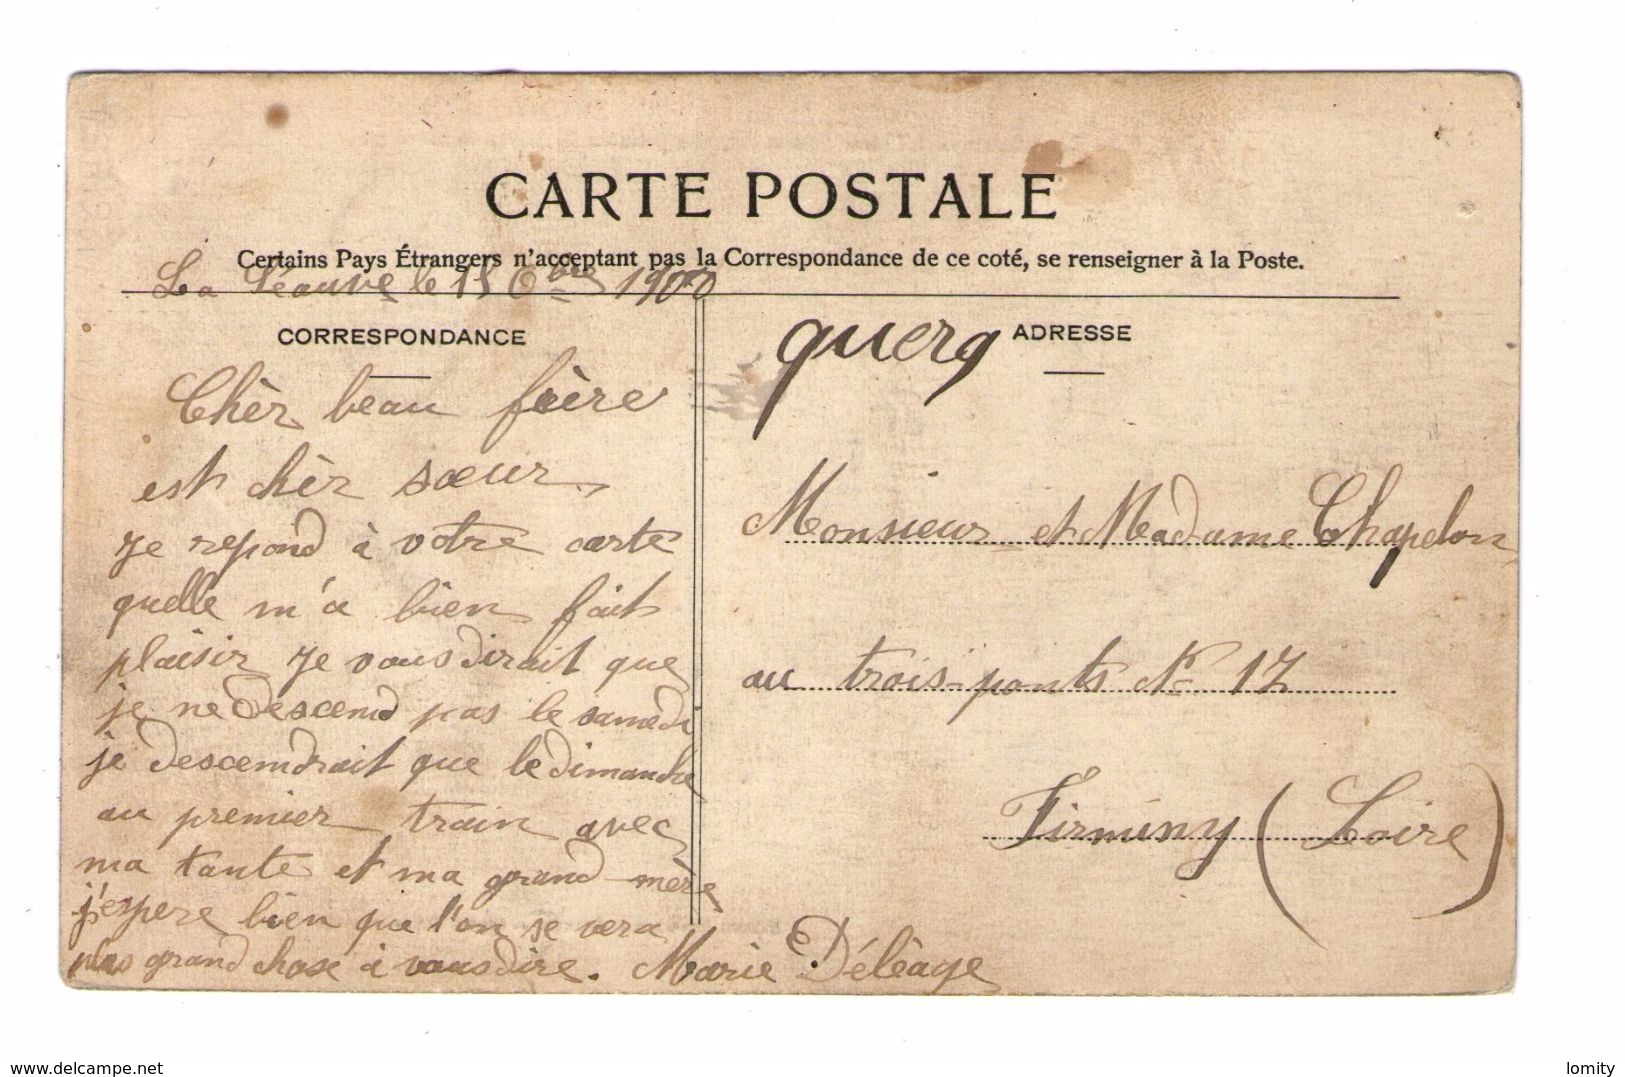 CARTE POSTALE
Certains Pays Étrangers n'acceptant pas la Correspondance de ce coté, se renseigner à la Poste.
La Séauve le 15 bre
CORRESPONDANCE
Chèr beau frère
est chèr sœur
je repond à votre carte
quelle m'a bien fait
plaisir je vous dirait que
je ne descend pas le samedi
je descendrait que le dimanche
au premier train avec
ma tante et ma grand mère
j'espere bien que l'on se vera
plus grand chose à vous dire. Marie Déléage
ADRESSE
Monsieur et Madame Chapelon
au trois ponts No 17
Firminy (Loire)
www.delcampe.net
lomity